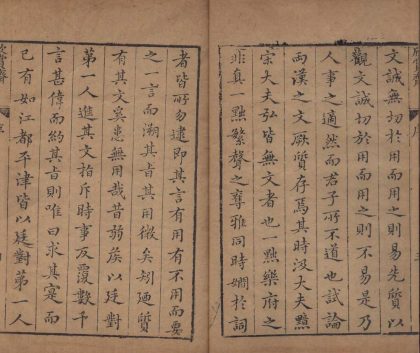 欣賞齋
文誠無切於用而用之則易先質以
觀文誠切於用而用之則不易是乃
人事之適然而君子所不道也試論
兩漢之文厥質存焉其時汲大夫黯
宗大夫弘皆無文者也一點樂府之
非真一點繁聲之奪雅同時嫺於詞
者皆所勿逮即其言有用有不用而要
之一言而溯其旨其用微矣矧廼質
有其文奚患無用哉昔弱矦以廷對
第一人進其文指斥時事反覆數千
言甚偉而約其旨則唯曰求其寔而
已有如江都平津皆以廷對第一人
欣賞齋